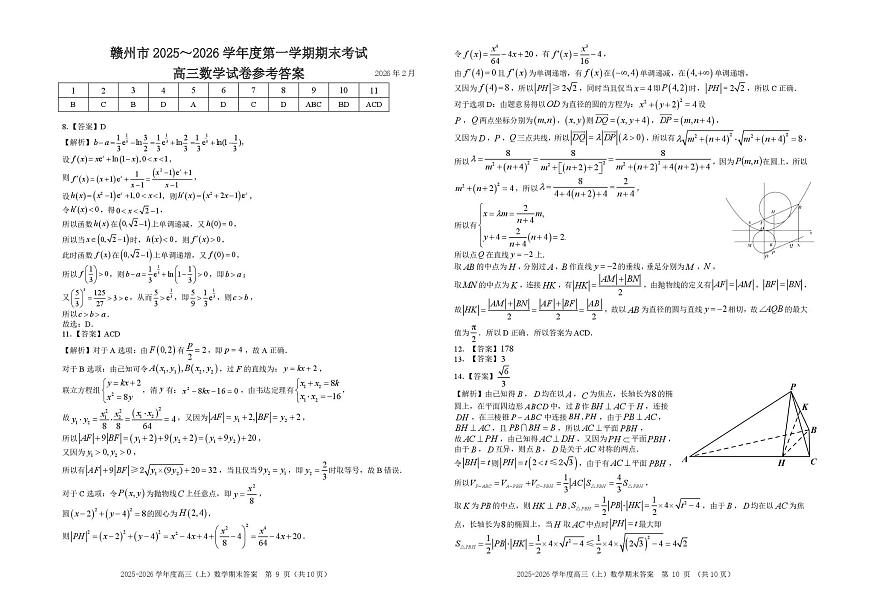 赣州市 2025～2026 学年度第一学期期末考试
高三数学试卷参考答案
2026 年 2 月
1 2 3 4 5 6 7 8 9 10 11
B C B D A D C D ABC BD ACD
8.【答案】D
【解析】b−a=1/3 e^(1/3)−ln 3/2=1/3 e^(1/3)+ln 2/3=1/3 e^(1/3)+ln(1−1/3),
设 f(x)=xe^x+ln(1−x),0<x<1,
则 f′(x)=(x+1)e^x+1/(x−1)=((x²−1)e^x+1)/(x−1),
设h(x)=(x²−1)e^x+1,0<x<1, 则h′(x)=(x²+2x−1)e^x,
令h′(x)<0, 得0<x<√2−1,
所以函数h(x)在(0,√2−1)上单调递减, 又h(0)=0,
所以当x∈(0,√2−1)时, h(x)<0, 则f′(x)>0,
此时函数f(x)在(0,√2−1)上单调递增, 又f(0)=0,
所以f(1/3)>0, 则b−a=1/3 e^(1/3)+ln(1−1/3)>0, 即b>a;
又(5/3)³=125/27>3>e, 从而5/3>e^(1/3), 即5/9>1/3 e^(1/3), 则c>b,
所以c>b>a.
故选: D.
11.【答案】ACD
【解析】对于 A 选项: 由F(0,2)有p/2=2, 即p=4, 故 A 正确.
对于 B 选项: 由已知可令A(x₁,y₁),B(x₂,y₂), 过F的直线为: y=kx+2,
联立方程组{y=kx+2 x²=8y, 消y有: x²−8kx−16=0, 由韦达定理有{x₁+x₂=8k x₁·x₂=−16,
故y₁·y₂=x₁²/8·x₂²/8=(x₁·x₂)²/64=4, 又因为|AF|=y₁+2,|BF|=y₂+2,
所以|AF|+9|BF|=(y₁+2)+9(y₂+2)=(y₁+9y₂)+20,
又因为y₁>0,y₂>0,
所以有|AF|+9|BF|≥2√(y₁×(9y₂))+20=32, 当且仅当9y₂=y₁, 即y₂=2/3时取等号, 故 B 错误.
对于 C 选项: 令P(x,y)为抛物线C上任意点, 即y=x²/8,
圆(x−2)²+(y−4)²=8的圆心为H(2,4),
则|PH|²=(x−2)²+(y−4)²=x²−4x+4+(x²/8−4)²=x⁴/64−4x+20,
2025-2026 学年度高三（上）数学期末答案 第 9 页（共 10 页）
令f(x)=x⁴/64−4x+20, 有f′(x)=x³/16−4,
由f′(4)=0且f′(x)为单调递增, 有f(x)在(−∞,4)单调递减, 在(4,+∞)单调递增,
又因为f(4)=8, 所以|PH|≥2√2, 同时当且仅当x=4即P(4,2)时, |PH|=2√2, 所以 C 正确.
对于选项 D: 由题意易得以OD为直径的圆的方程为: x²+(y+2)²=4设
P, Q两点坐标分别为(m,n), (x,y)则DQ=(x,y+4), DP=(m,n+4),
又因为D, P, Q三点共线, 所以|DQ|=λ|DP|(λ>0), 所以有λ√(m²+(n+4)²)·√(m²+(n+4)²)=8,
所以λ=8/(m²+(n+4)²)=8/(m²+[(n+2)+2]²)=8/(m²+(n+2)²+4(n+2)+4), 因为P(m,n)在圆上, 所以
m²+(n+2)²=4, 所以λ=8/(4+4(n+2)+4)=2/(n+4),
所以有{x=λm=2/(n+4) m, y+4=2/(n+4)(n+4)=2.
所以点Q在直线y=−2上.
取AB的中点为H, 分别过A, B作直线y=−2的垂线, 垂足分别为M, N,
取MN的中点为K, 连接HK, 有|HK|=(|AM|+|BN|)/2, 由抛物线的定义有|AF|=|AM|, |BF|=|BN|,
故|HK|=(|AM|+|BN|)/2=(|AF|+|BF|)/2=|AB|/2, 故以AB为直径的圆与直线y=−2相切, 故∠AQB的最大
值为π/2. 所以 D 正确. 所以答案为 ACD.
12.【答案】178
13.【答案】3
14.【答案】√6/3
【解析】由已知得B, D均在以A, C为焦点, 长轴长为8的椭
圆上, 在平面四边形ABCD中, 过B作BH⊥AC于H, 连接
DH, 在三棱锥P−ABC中连接BH,PH, 由于PB⊥AC,
BH⊥AC, 且PB∩BH=B, 所以AC⊥平面PBH,
故AC⊥PH, 由已知得AC⊥DH, 又因为PH⊂平面PBH,
由于B, D互异, 则点B, D是关于AC对称的两点.
令|BH|=t则|PH|=t(2<t≤2√3), 由于有AC⊥平面PBH,
所以V_(P−ABC)=V_(A−PBH)+V_(C−PBH)=1/3|AC|S_(△PBH)=4/3 S_(△PBH),
取K为PB的中点, 则HK⊥PB,S_(△PBH)=1/2|PB|·|HK|=1/2×4×√(t²−4), 由于B, D均在以AC为焦
点, 长轴长为8的椭圆上, 当H取AC中点时|PH|=t最大即
S_(△PBH)=1/2|PB|·|HK|=1/2×4×√(t²−4)≤1/2×4×√((2√3)²−4)=4√2
P
K
B
A
H
C
2025-2026 学年度高三（上）数学期末答案 第 10 页 （共 10 页）